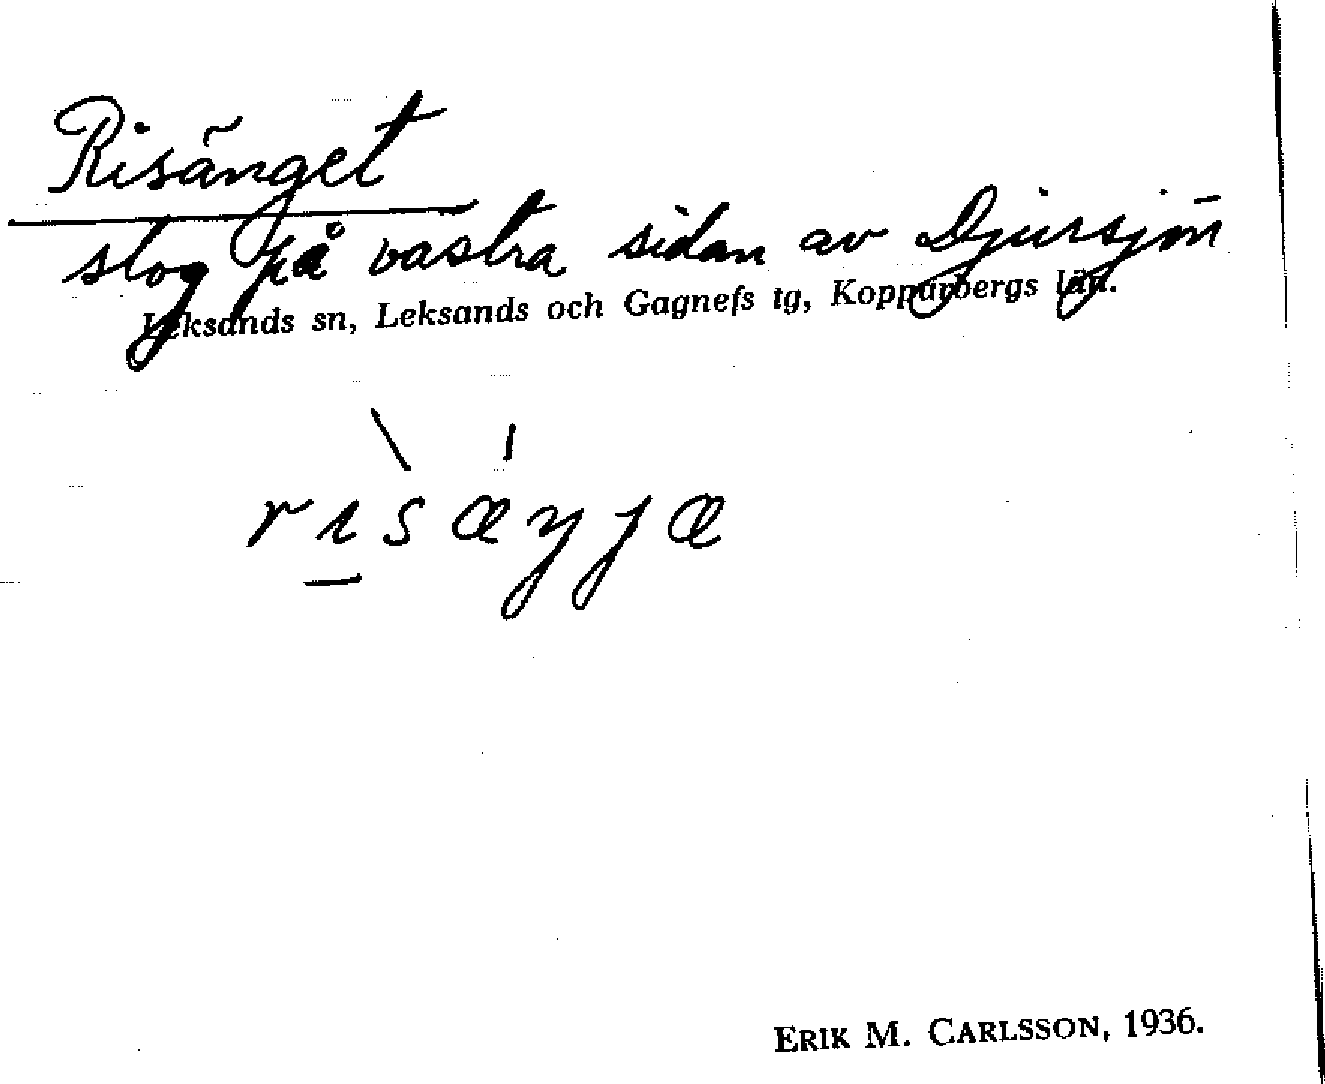 Risänget
slog på västra sidan av Djursjön
Leksands sn, Leksands och Gagnefs tg, Kopparbergs län.
rɩ̱̀sǽŋjæ
ERIK M. CARLSSON, 1936.